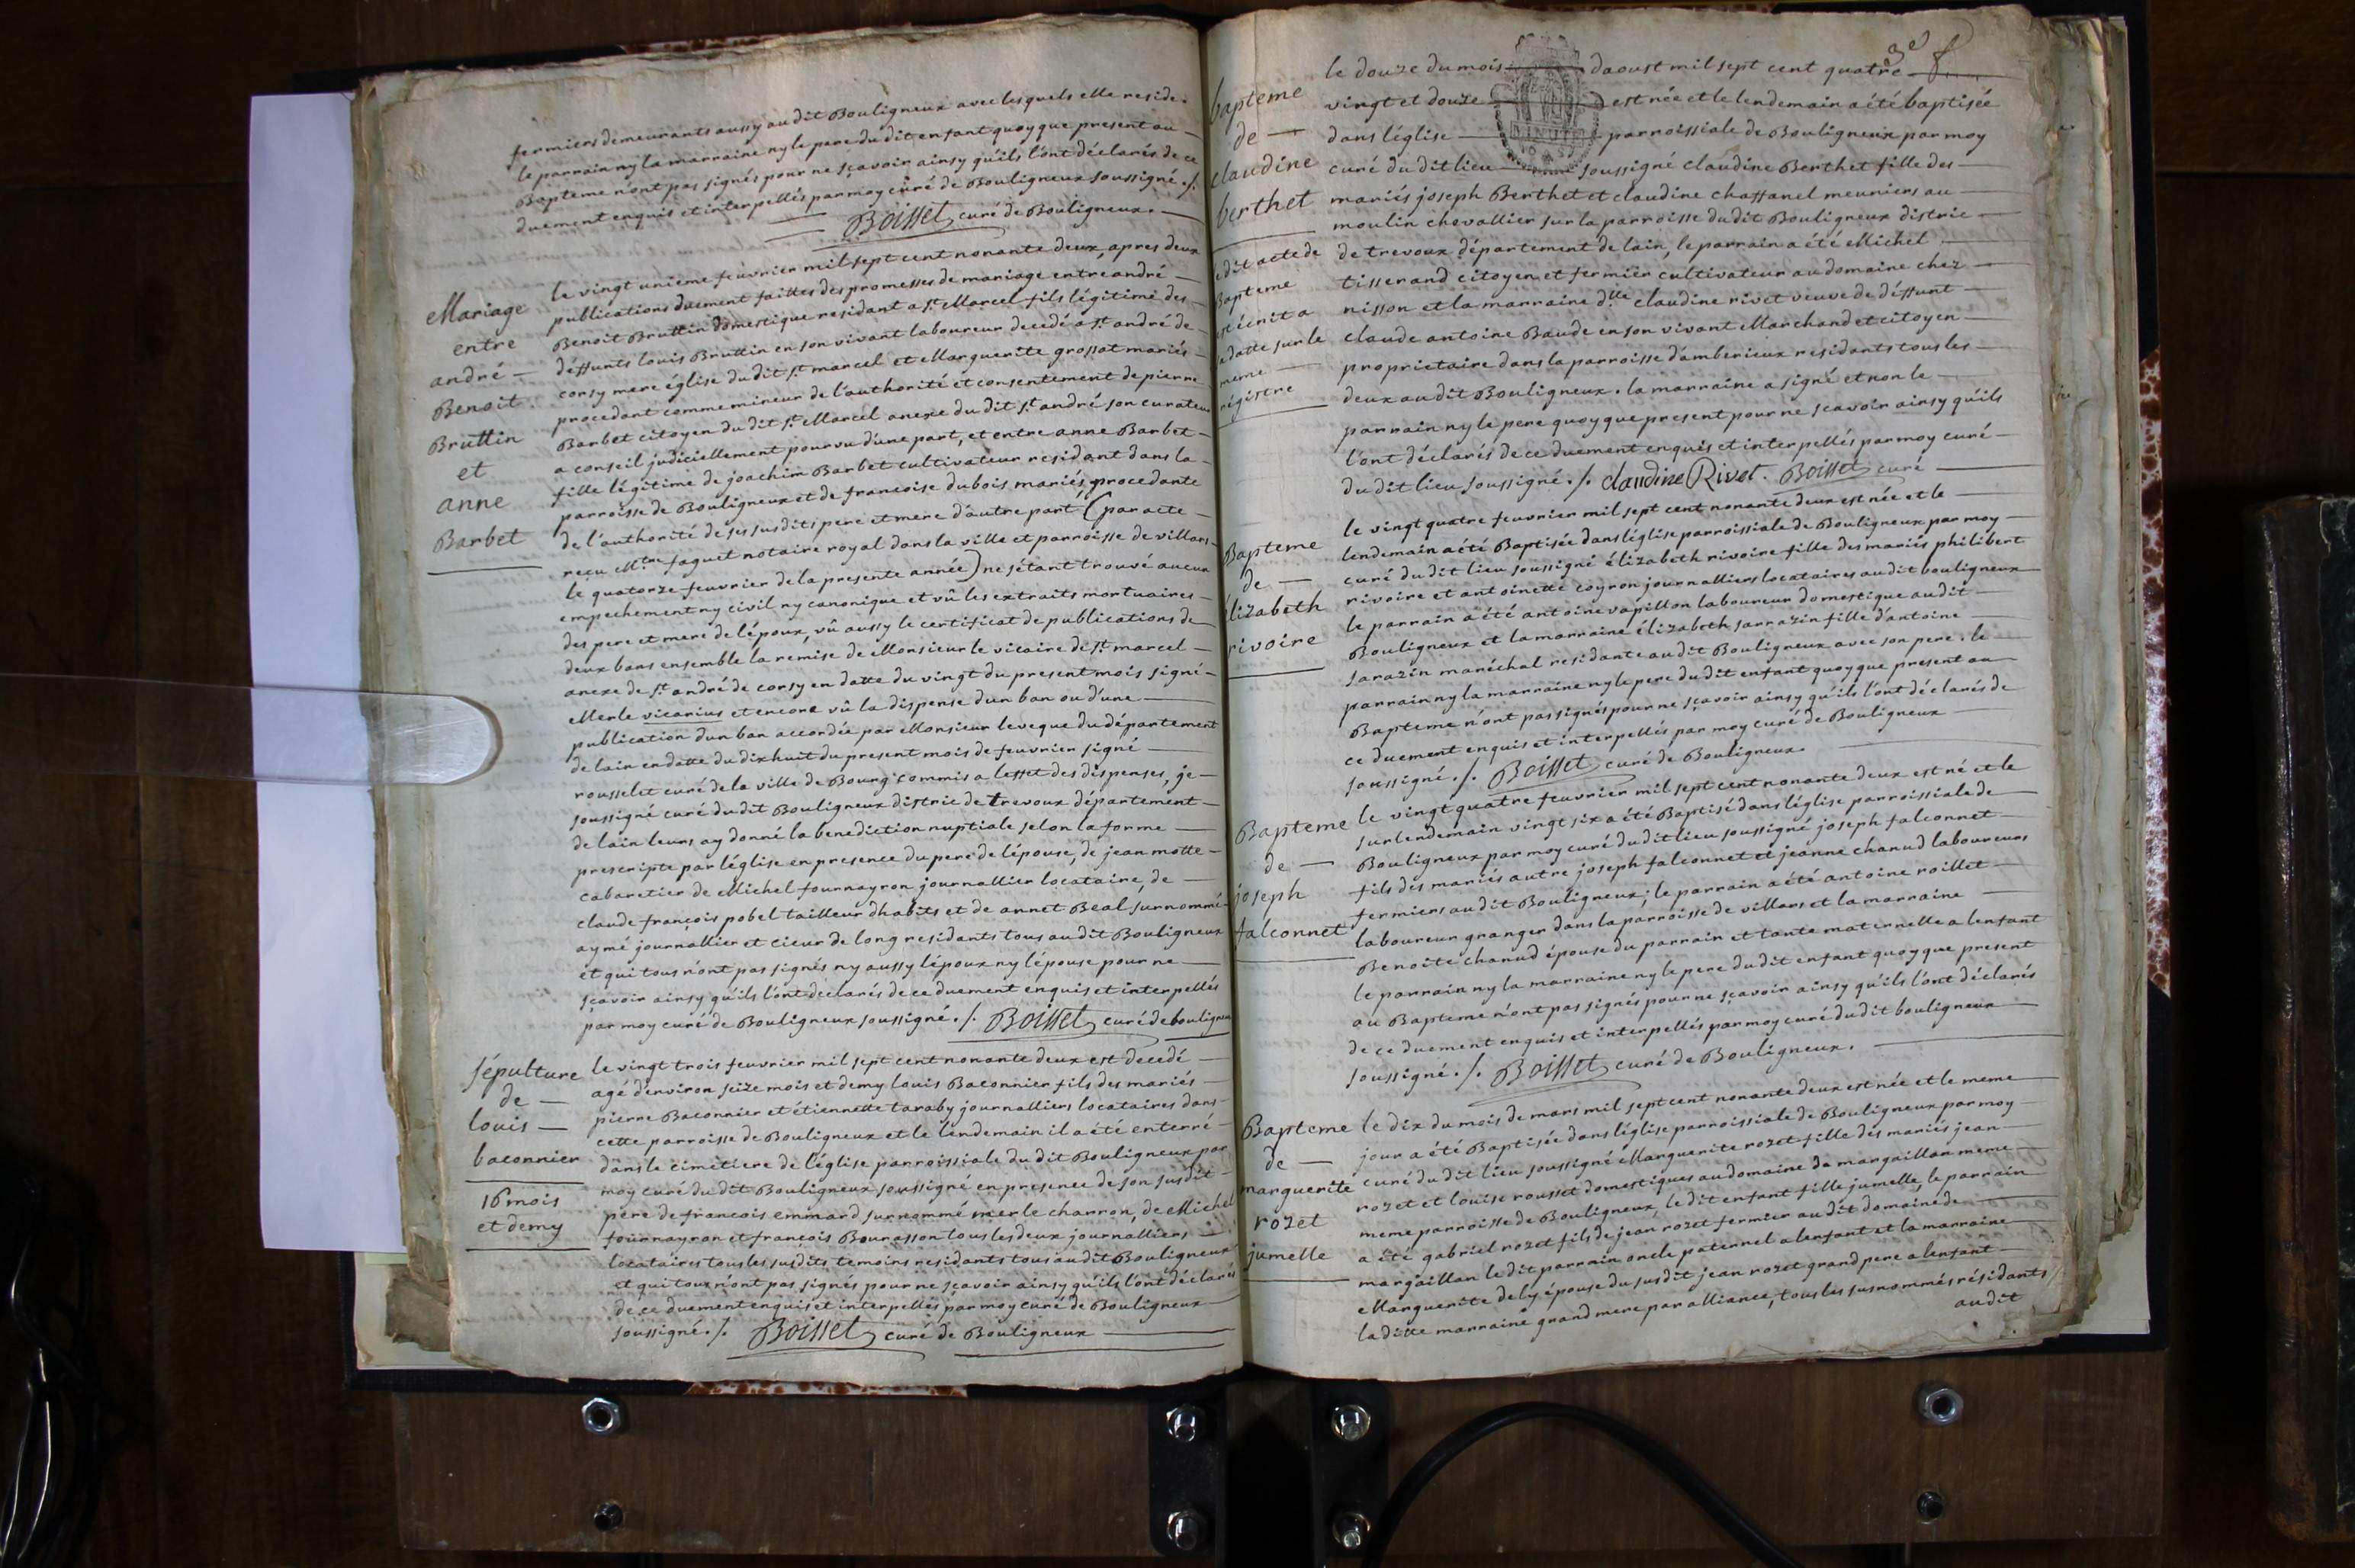 fermiers demeurants aussy au dit Bouligneux avec lesquels elle reside.
le parrain ny la marraine ny le pere du dit enfant quoy que present au
Bapteme n'ont pas signés pour ne sçavoir ainsy qu'ils l'ont déclarés de ce
duement enquis et interpellés par moy curé de Bouligneux soussigné ./.
Boisset curé de Bouligneux.
Mariage
entre
andré
Benoit
Bruttin
et
anne
Barbet
le vingt unieme feuvrier mil sept cent nonante deux, apres deux
publications duement faittes des promesses de mariage entre andré
Benoit Bruttin domestique residant a st. Marcel fils légitime des
déffunts louis Bruttin en son vivant laboureur decedé a st. andré de
corsy mere église du dit st. marcel et Marguerite grossat mariés
procedant comme mineur de l'authorité et consentement de pierre
Barbet citoyen du dit st. Marcel anexe du dit st. andré son curateur
a conseil judiciellement pourvu d'une part, et entre anne Barbet
fille légitime de joachim Barbet cultivateur residant dans la
parroisse de Bouligneux et de francoise dubois mariés procedante
de l'authorité de ses susdits pere et mere d'autre part (par acte
reçu Mtre. faquet notaire royal dans la ville et parroisse de villars
le quatorze feuvrier de la presente année) ne s'étant trouvé aucun
empechement ny civil ny canonique et vû les extraits mortuaires
des pere et mere de l'époux, vû aussy le certificat de publications de
deux bans ensemble la remise de Monsieur le vicaire de st. marcel
anexe de st. andré de corsy en datte du vingt du present mois signé
Merle vicarius et encore vû la dispense d'un ban ou d'une
publication d'un ban accordée par Monsieur leveque du département
de lain en datte du dixhuit du present mois de feuvrier signé
rousselet curé de la ville de Bourg commis a l'effet des dispenses, je
soussigné curé du dit Bouligneux distric de trevoux département
de lain leurs ay donné la benediction nuptiale selon la forme
prescripte par l'église en presence du pere de l'épouse, de jean motte
cabaretier de Michel fournayron journallier locataire, de
claude françois pobel tailleur d'habits et de annet Beal surnommé
aymé journallier et cieur de long residants tous au dit Bouligneux
et qui tous n'ont pas signés ny aussy l'époux ny l'épouse pour ne
sçavoir ainsy qu'ils l'ont declarés de ce duement enquis et interpellés
par moy curé de Bouligneux soussigné ./. Boisset curé de bouligneux
sépulture
de
louis
baconnier
16 mois
et demy
le vingt trois feuvrier mil sept cent nonante deux est decedé
agé d'environ seize mois et demy louis Baconnier fils des mariés
pierre Baconnier et étiennette taraby journalliers locataires dans
cette parroisse de Bouligneux et le lendemain il a été enterré
dans le cimetiere de l'église parroissiale du dit Bouligneux par
moy curé du dit Bouligneux soussigné en presence de son susdit
pere de francois emmard surnommé merle charron, de Michel
fournayron et françois Bourasson tous les deux journalliers
locataires tous les susdits temoins residants tous au dit Bouligneux
et qui tous n'ont pas signés pour ne sçavoir ainsy qu'ils l'ont déclarés
de ce duement enquis et interpellés par moy curé de Bouligneux
soussigné ./. Boisset curé de Bouligneux
3e
bapteme
de
claudine
berthet
bapteme
meme
régistre
le douze du mois daoust mil sept cent quatre
vingt et douze est née et le lendemain a été baptisée
dans l'église parroissiale de Bouligneux par moy
curé du dit lieu soussigné claudine Berthet fille des
mariés joseph Berthet et claudine chaffanel meuniers au
moulin chevallier sur la parroisse du dit Bouligneux distric
de trevoux département de lain, le parrain a été Michel
tisserand citoyen et fermier cultivateur au domaine chez
nisson et la marraine dlle claudine rivet veuve de déffunt
claude antoine Baude en son vivant Marchand et citoyen
proprietaire dans la parroisse d'amberieux residants tous les
deux au dit Bouligneux. la marraine a signé et non le
parrain ny le pere quoy que present pour ne sçavoir ainsy qu'ils
l'ont déclarés de ce duement enquis et interpellés par moy curé
du dit lieu soussigné ./. claudine Rivet. Boisset curé
Bapteme
de
élizabeth
rivoire
le vingt quatre feuvrier mil sept cent nonante deux est née et le
lendemain a été Baptisée dans l'église parroissiale de Bouligneux par moy
curé du dit lieu soussigné élizabeth rivoire fille des mariés philibert
rivoire et antoinette coyron journalliers locataires au dit bouligneux
le parrain a été antoine vapillon laboureur domestique au dit
Bouligneux et la marraine élizabeth sarrazin fille d'antoine
sarazin maréchal residante au dit Bouligneux avec son pere. le
parrain ny la marraine ny le pere du dit enfant quoy que present au
Bapteme n'ont pas signés pour ne sçavoir ainsy qu'ils l'ont déclarés de
ce duement enquis et interpellés par moy curé de Bouligneux
soussigné ./. Boisset curé de Bouligneux.
Bapteme
de
joseph
falconnet
le vingt quatre feuvrier mil sept cent nonante deux est né et le
surlendemain vingt six a été Baptisé dans l'église parroissiale de
Bouligneux par moy curé du dit lieu soussigné joseph falconnet
fils des mariés autre joseph falconnet et jeanne chanud laboureurs
fermiers au dit Bouligneux; le parrain a été antoine roillet
laboureur granger dans la parroisse de villars et la marraine
Benoite chanud épouse du parrain et tante maternelle a l'enfant
le parrain ny la marraine ny le pere du dit enfant quoy que present
au Bapteme n'ont pas signés pour ne sçavoir ainsy qu'ils l'ont déclarés
de ce duement enquis et interpellés par moy curé du dit bouligneux
soussigné ./. Boisset curé de Bouligneux.
Bapteme
de
marguerite
rozet
jumelle
le dix du mois de mars mil sept cent nonante deux est née et le meme
jour a été Baptisée dans l'église parroissiale de Bouligneux par moy
curé du dit lieu soussigné Marguerite rozet fille des mariés jean
rozet et louise rousset domestiques au domaine de margaillan meme
meme parroisse de Bouligneux, le dit enfant fille jumelle, le parrain
a été gabriel rozet fils de jean rozet fermier au dit domaine de
margaillan le dit parrain oncle paternel a l'enfant et la marraine
Marguerite dely épouse du susdit jean rozet grand pere a l'enfant
la ditte marraine grand mere par alliance, tous les susnommés résidants
au dit